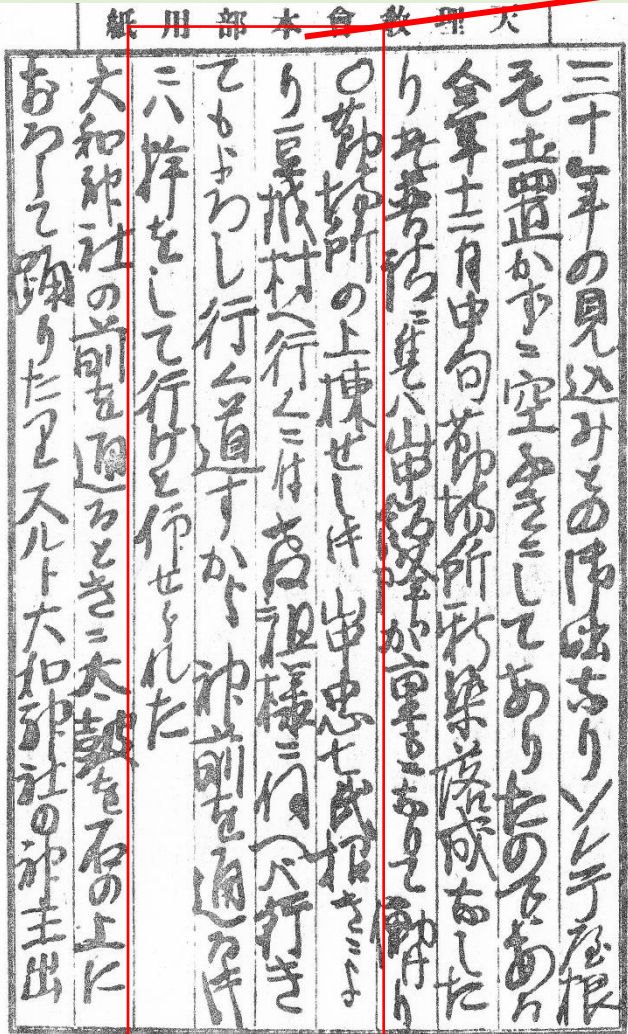 天理教會本部用紙
三十年の見込みとの御咄なりソレデ屋根
毛土置かずニ空ぶきニしてありたのである
仝年十二月中旬勤場所新築落成なした
り其普請ニ ハ山中飯降が重もニなりて働けり
〇勤場所の上棟せし時山中忠七氏招きによ
り豆越村へ行くには教祖様ニ伺へバ行き
てもよろし行く道すから神前を通る時
ニハ拝をして行けと仰せられた
大和神社の前を通るときニ太鼓を石の上に
おろして踊りたりスルト大和神社の神主出